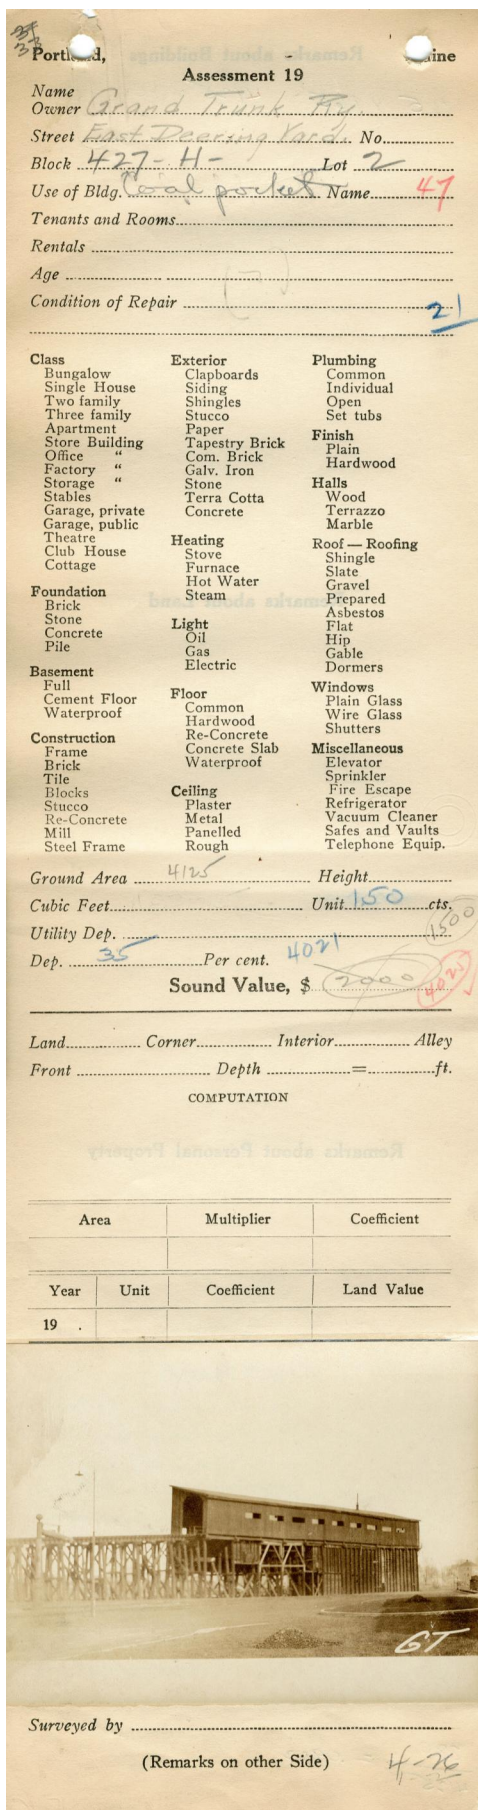 Portland, Maine
Assessment 19
Name
Owner Grand Trunk Ry.
Street East Deering Yard. No.
Block 427-H- Lot 2
Use of Bldg. Coal pocket Name 47
Tenants and Rooms
Rentals
Age
Condition of Repair 21
Class
Bungalow
Single House
Two family
Three family
Apartment
Store Building
Office "
Factory "
Storage "
Stables
Garage, private
Garage, public
Theatre
Club House
Cottage
Foundation
Brick
Stone
Concrete
Pile
Basement
Full
Cement Floor
Waterproof
Construction
Frame
Brick
Tile
Blocks
Stucco
Re-Concrete
Mill
Steel Frame
Exterior
Clapboards
Siding
Shingles
Stucco
Paper
Tapestry Brick
Com. Brick
Galv. Iron
Stone
Terra Cotta
Concrete
Heating
Stove
Furnace
Hot Water
Steam
Light
Oil
Gas
Electric
Floor
Common
Hardwood
Re-Concrete
Concrete Slab
Waterproof
Ceiling
Plaster
Metal
Panelled
Rough
Plumbing
Common
Individual
Open
Set tubs
Finish
Plain
Hardwood
Halls
Wood
Terrazzo
Marble
Roof — Roofing
Shingle
Slate
Gravel
Prepared
Asbestos
Flat
Hip
Gable
Dormers
Windows
Plain Glass
Wire Glass
Shutters
Miscellaneous
Elevator
Sprinkler
Fire Escape
Refrigerator
Vacuum Cleaner
Safes and Vaults
Telephone Equip.
Ground Area 4125 Height
Cubic Feet Unit 150 cts.
Utility Dep. 1500
Dep. 35 Per cent. 4021
Sound Value, $ 2000 4021
Land Corner Interior Alley
Front Depth = ft.
COMPUTATION
Area Multiplier Coefficient
Year Unit Coefficient Land Value
19 .
GT
Surveyed by
(Remarks on other Side) 4-26